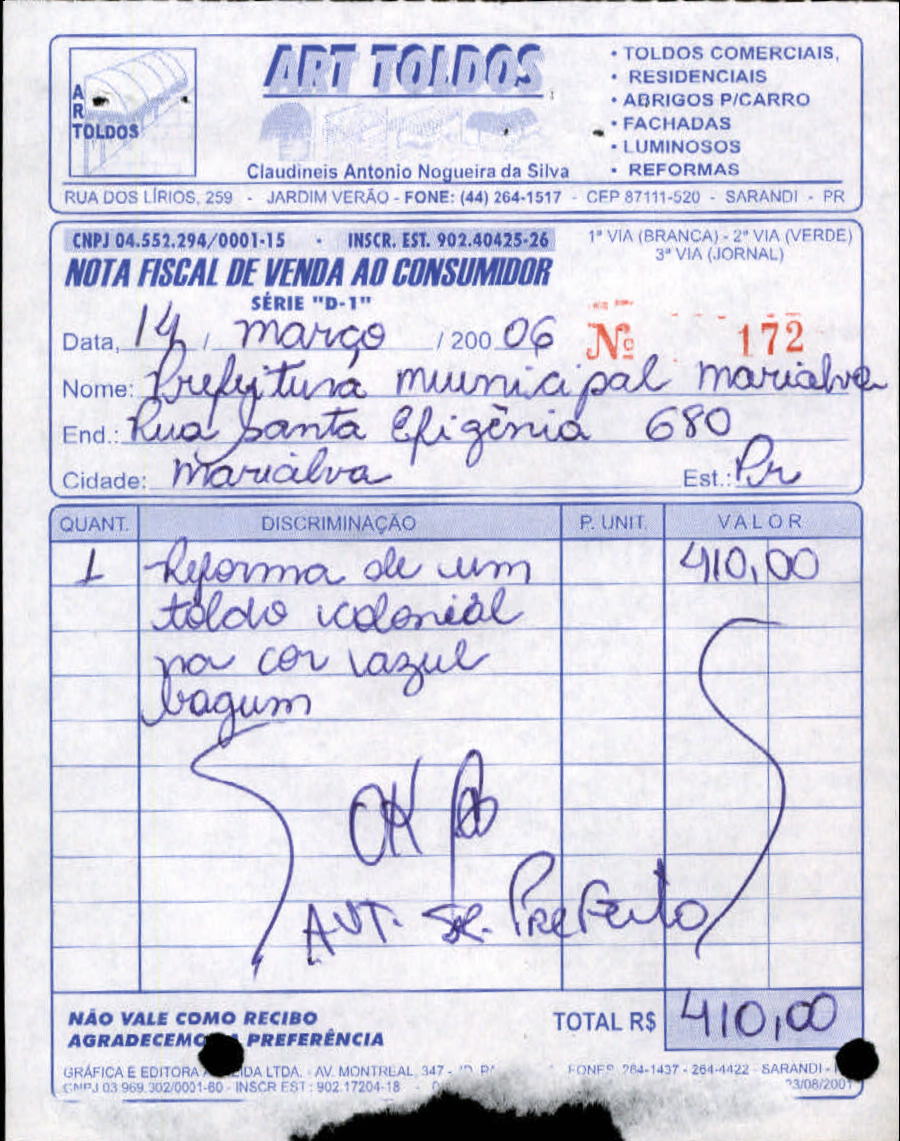 A
R
TOLDOS
ART TOLDOS
Claudineis Antonio Nogueira da Silva
• TOLDOS COMERCIAIS,
• RESIDENCIAIS
• ABRIGOS P/CARRO
• FACHADAS
• LUMINOSOS
• REFORMAS
RUA DOS LÍRIOS, 259 - JARDIM VERÃO - FONE: (44) 264-1517 - CEP 87111-520 - SARANDI - PR
CNPJ 04.552.294/0001-15 • INSCR. EST. 902.40425-26
1ª VIA (BRANCA) - 2ª VIA (VERDE)
3ª VIA (JORNAL)
NOTA FISCAL DE VENDA AO CONSUMIDOR
SÉRIE "D-1"
Data, 14 / março / 200 06 Nº 172
Nome: Prefeitura municipal marialva
End.: Rua Santa Efigênia 680
Cidade: Marialva Est.: Pr
QUANT. DISCRIMINAÇÃO P. UNIT. VALOR
1 Reforma de um 410,00
toldo colonial
na cor azul
bagum
OK
AUT. SR. PREFEITO
NÃO VALE COMO RECIBO
TOTAL R$ 410,00
PREFERÊNCIA
GRÁFICA E EDITORA LTDA. - AV. MONTREAL, 347 - FONES 264-1437 - 264-4422 - SARANDI -
CNPJ 03.969.302/0001-60 - INSCR EST.: 902.17204-18 - 23/08/2001